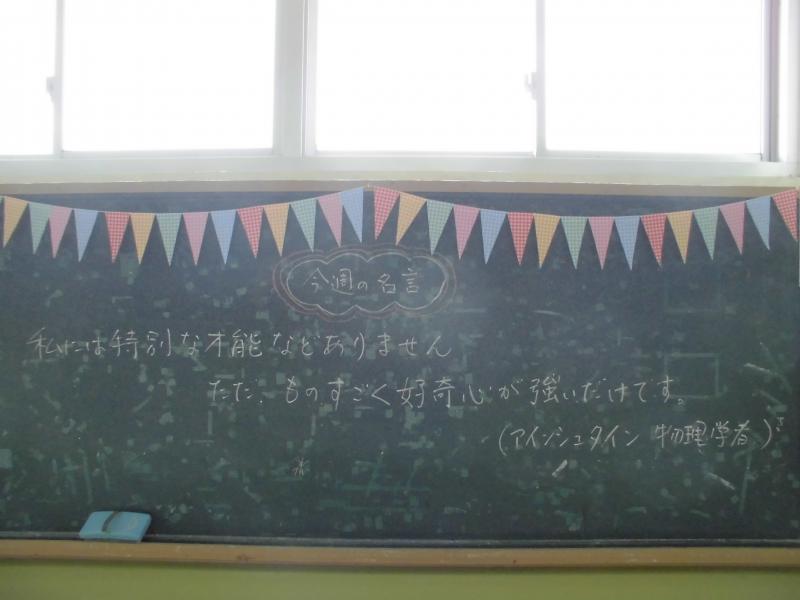 今週の名言
私には特別な才能などありません
ただ、ものすごく好奇心が強いだけです。
(アインシュタイン 物理学者)